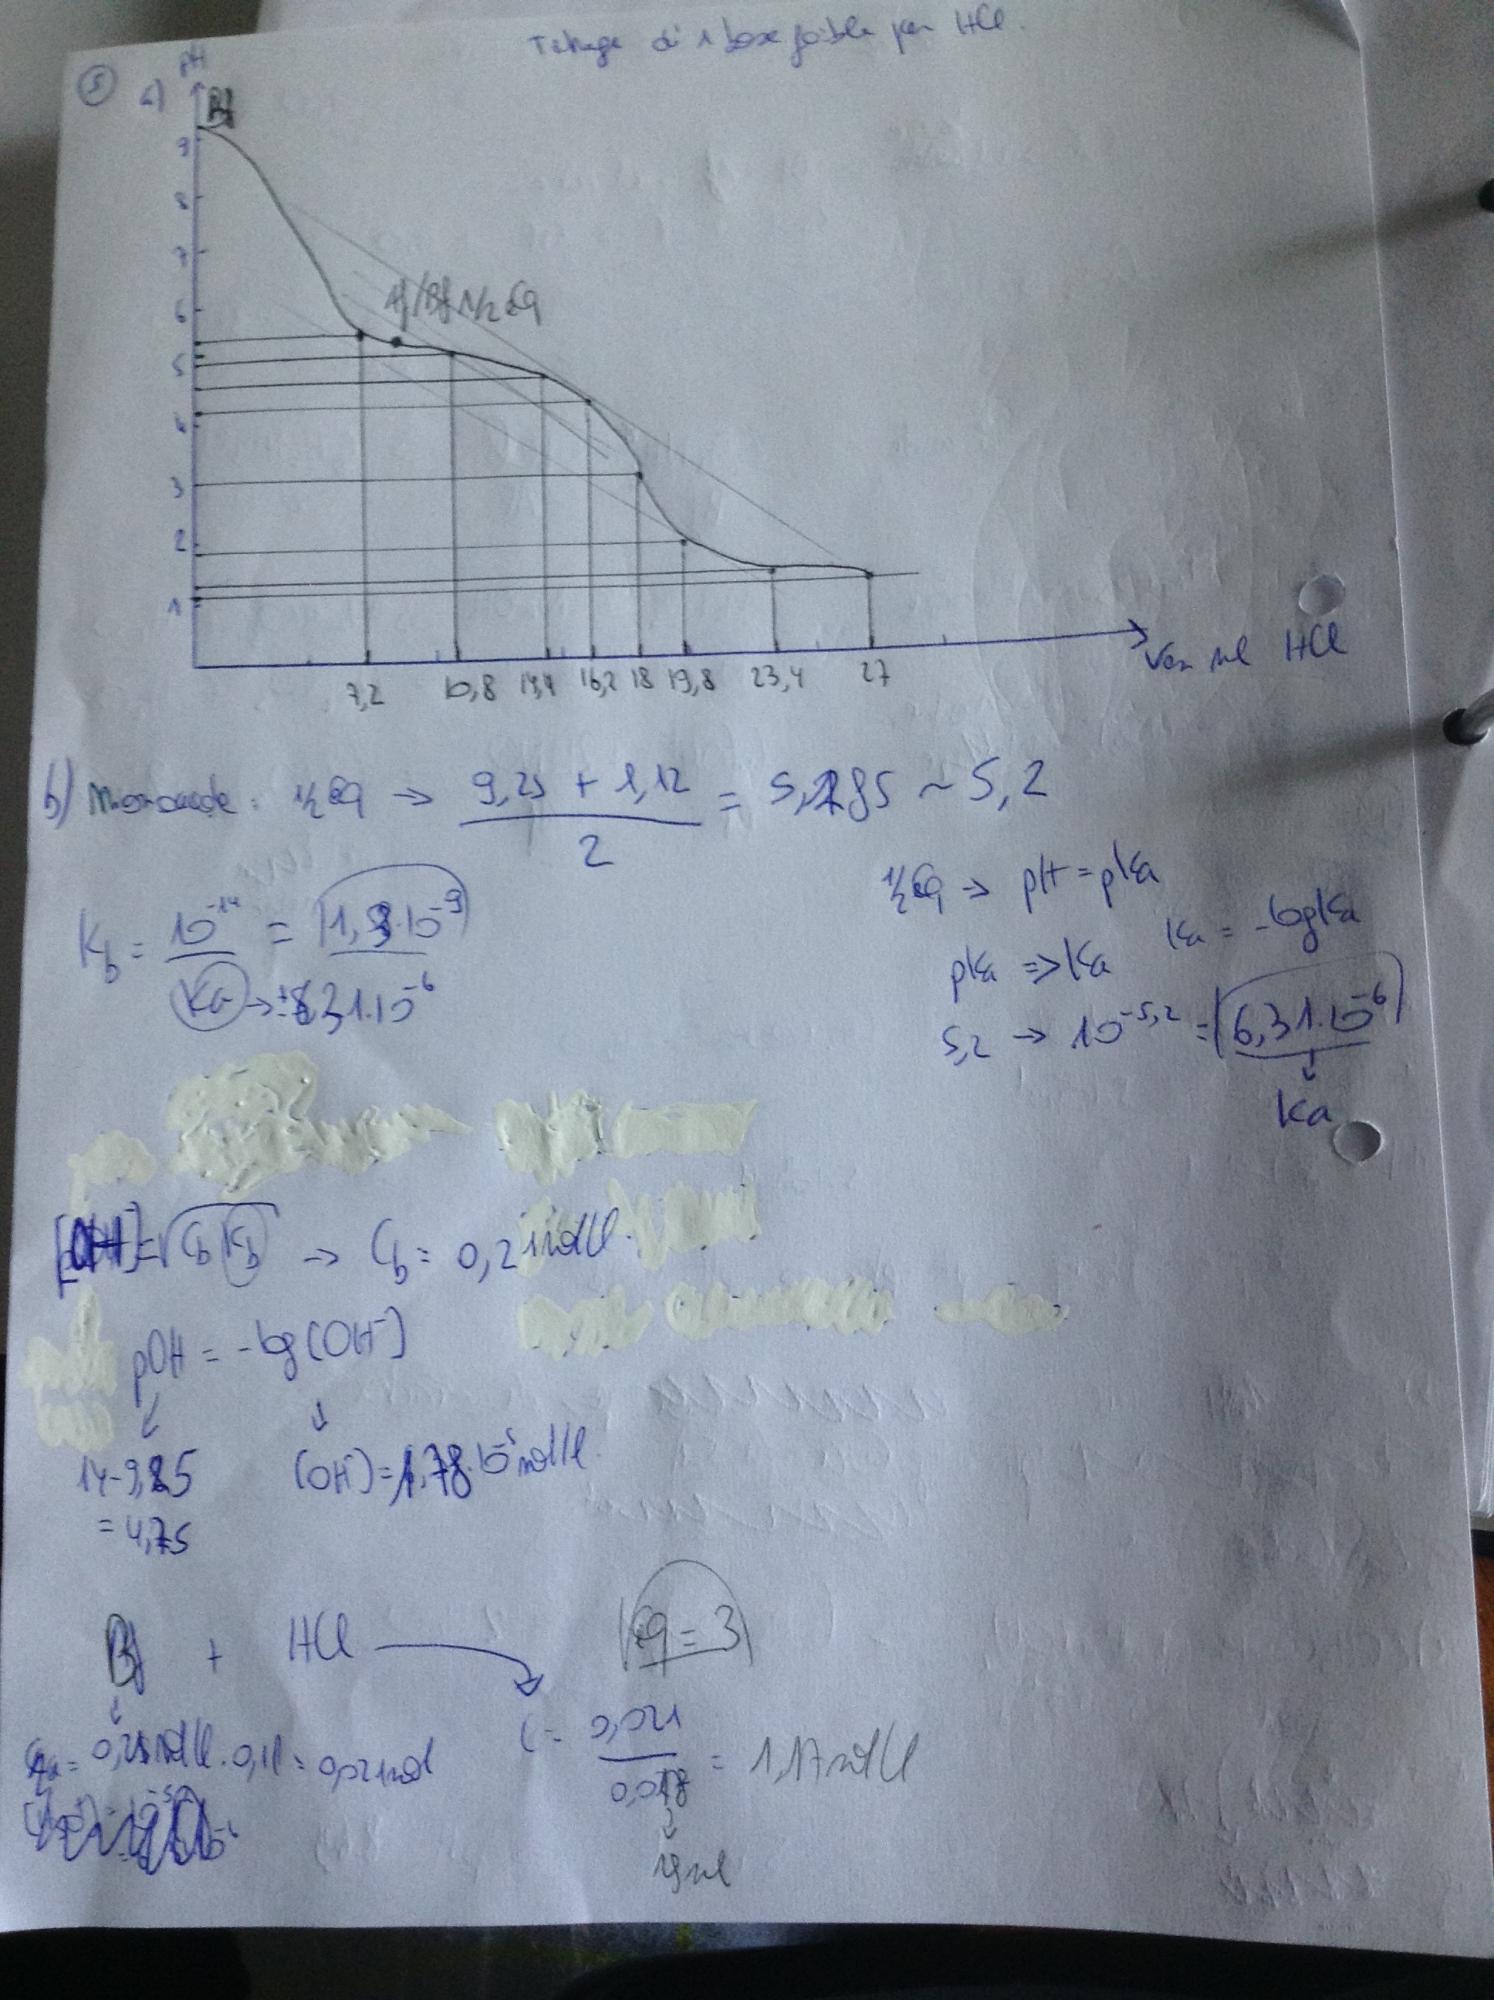 Titrage d'1 base faible par HCl.
5 a) pH
Bf
9
8
7
6
5
4
3
2
1
Af/Bf 1/2 Eq
7,2 10,8 14,4 16,2 18 19,8 23,4 27
V en ml HCl
b) 1/2 Eq → 9,25 + 1,12 / 2 = 5,185 ~ 5,2
1/2 Eq → pH = pKa
Kb = 10^-14 / Ka = 10^-9
Ka → 6,31.10^-6
pKa => Ka Ka = -log Ka
5,2 → 10^-5,2 = 6,31.10^-6
↓
Ka
[OH-] = √Cb Kb → Cb = 0,21 mol/l.
pOH = -log [OH-]
14-9,25 [OH-] = 1,78.10^-5 mol/l.
= 4,75
Bf + HCl → Eq = 3
0,21 mol/l . 0,1 l = 0,021 mol
C = 0,021 / 0,018 = 1,17 mol/l
↓
18 ml